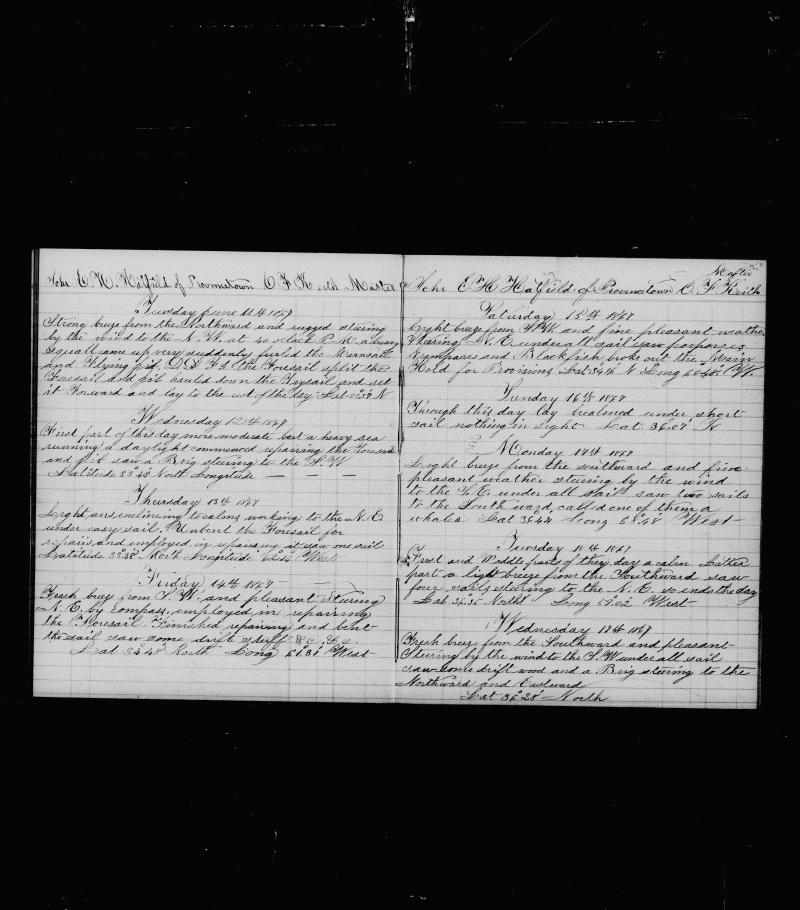 Schr E. H. Hatfield of Provincetown C F Keith Master
Tuesday June 11th 1867
Strong breeze from the Northward and rugged steering
by the wind to the N. W. at 4 oclock P. M. a heavy
squall came up very suddenly furled the Mainsail
and Flying jib the Foresail split the
Foresail and jib hauled down the Trysail and set
it Forward and lay to the rest of the day Lat N
Wednesday 12th 1867
First part of this day more moderate but a heavy sea
running a daylight commenced repairing the Foresail
and jib saw a Brig steering to the S. W
Latitude 33°43 North Longitude — — —
Thursday 13th 1867
Light airs inclining to calms working to the N. E.
under easy sail. Unbent the Foresail for
repairs and employed in repairing it saw one sail
Latitude 33°38' North Longitude West
Friday 14th 1867
Fresh breeze from S. W. and pleasant Steering
N. E. by compass employed in repairing
the Foresail Finished repairing and bent
the sail saw some drift stuff &c, &c.
Lat North Long 61°31' West
Master
Schr E H Hatfield of Provincetown C. F. Keith
Saturday 15th 1867
Light breeze from S. W and fine pleasant weather
Steering N. E under all sail saw porpoises
Grampuses and Blackfish broke out the Main
Hold for Provisions Lat N Long W.
Sunday 16th 1867
Through this day lay becalmed under short
sail nothing in sight Lat 36.07' N
Monday 17th 1867
Light breeze from the southward and fine
pleasant weather steering by the wind
to the S. E. under all sail saw two sails
to the Southward, called one of them a
whaler Lat 36 44 Long 58°48' West
Tuesday 18th 1867
First and Middle parts of they day a calm Latter
part a light breeze from the Southward saw
four sails steering to the N. E. so ends the day
Lat North Long 59.02 West
Wednesday 19th 1867
Fresh breeze from the Southward and pleasant
Steering by the wind to the S. W under all sail
saw some drift wood and a Brig steering to the
Northward and Eastward
Lat 36°28' North